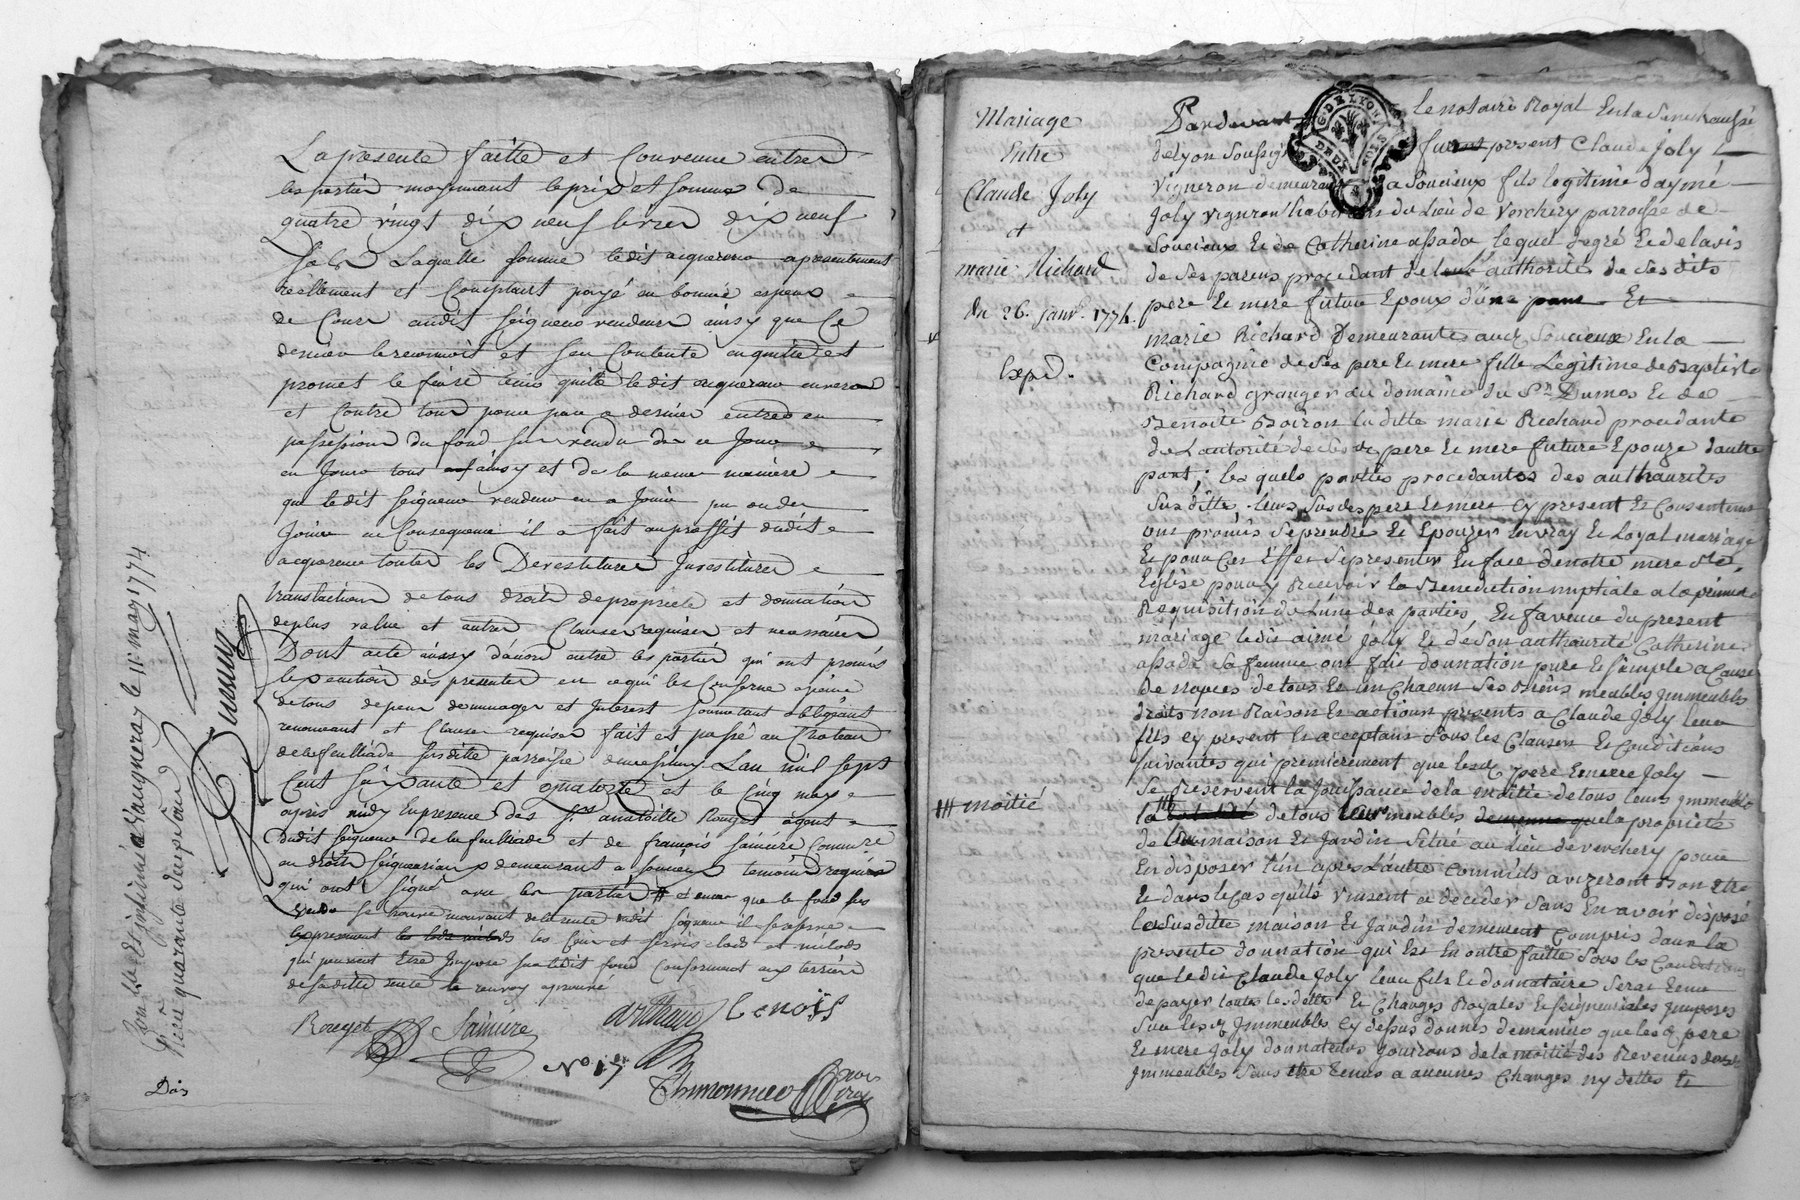 La presente faitte et Convenue entre
les parties moyennant le prix et somme de
quatre vingt dix neuf livres dix neuf
sols Laquelle somme ledit acquereur a presentement
réellement et Comptant payé en bonnes especes
de Cours audit seigneur vendeur ainsy que Ce
dernier le reconnoit et sen Contente en quitte et
promet le faire tenir quitte ledit acquereur envers
et Contre tous pour par ce dernier entrer en
possession du fond sus vendu des ce Jour
en Jouir tous ainsy et de la meme maniere
que ledit seigneur vendeur en a Joui pu ou du
Jouir en Consequence il a fait au proffit dudit
acquereur toutes les Devestitures Investitures
translation de tous droits de propriété et donnation
de plus value et autres Clauses requises et necessaires
Dont acte ainsy d'acord entre les parties qui ont promis
l'execution des presentes en ce qui les Conserne a peine
de tous depens dommages et Interest soumettant obligeant
renonceant et Clauses requises fait et passé au Chateau
de la feuillade susditte parroisse de Lan mil sept
Cent soixante et quatorze et le Cinq mars
apres midy En presence des Srs anatoille Rouget agent
dudit seigneur de la feuillade et de francois saimire Commre
en droits seigneuriaux demeurant a temoins requis
qui ont signé avec les parties # et encor que le fond sus
vendu se trouve mouvant de la rente dudit seigneur il se reserve
expressement les Cens et servis lods et milods
qui peuvent Etre Imposé sur ledit fond Conforment aux terriers
de laditte rente le renvoy aprouvé
Rouget Saimire Lenoir
No 17
Con lle et insinué a Vaugneray le 11 mars 1774
Reçu quarante deux sols
Dois
Mariage
Entre
Claude Joly
et
marie Richard
du 26. janv. 1774.
Expd.
Pardevant le notaire Royal En la Senechaussé
G. DE LYON
DEUX SOLS
delyon Soussigné furent present Claude Joly
vigneron demeurant a Soucieux fils legitime d'aymé
Joly vigneron habitant du Lieu de Verchery parroisse de
Soucieux Et de Catherine assada lequel degré Et de lavis
de Ses parens procedant de lauthorité de Ses dits
pere Et mere futur Epoux d'une part Et
marie Richard Demeurante audt Soucieux En la
Compagnie de Ses pere Et mere fille Legitime de Baptiste
Richard granger du domaine du Sr. Dumas Et de
Benoite Boiron la ditte marie Richard procedante
de Lautorité de Ses dt pere Et mere future Epouze d'autre
part; les quels parties procedantes des authaurites
Susditte leurs Susdes pere Et mere Cy present Et Consentents
ont promis Se prendre Et Epouzer En vray Et Loyal mariage
Et pour Cet Effet Se presenter En face de notre mere Ste
Eglise pour y Recevoir la Benediction nuptiale a la premiere
Requisition de L'une des parties, En faveur du present
mariage ledit aimé joly Et de Son authaurité Catherine
assada Sa femme ont fait donnation pure Et Simple a Cause
de nopces de tous Et un Chacun Ses biens meubles Immeubles
droits non Raison Et actions presents a Claude Joly leur
fils Cy present Et acceptant Sous les Clauses Et Conditions
suivantes qui premierement que lesdt pere Et mere Joly
Se Reservent la Jouissance de la moitie de tous leurs Immeuble
la # de tous leur meubles que la propriété
# moitié
de maison Et Jardin Situé au Lieu de verchery pour
En disposer l'un apres L'autre Comme ils avizeront Bon Etre
Et dans le Cas qu'ils vinsent a deceder Sans En avoir disposé
les Susditte maison Et Jardin demeurent Compris dans la
presente donnation qui Est En outre faitte Sous les Conditions
que ledit Claude Joly leur fils Et donnataire Serat tenu
de payer toutes les dettes Et Charges Royales Et Seigneuriales Imposés
Sur lesdt Immeubles Cy dessus donnés de maniere que lesdt pere
Et mere Joly donnateurs jouirons de la moitié des Revenus desdt
Immeubles Sans Etre tenus a aucunes Charges ny dettes Et